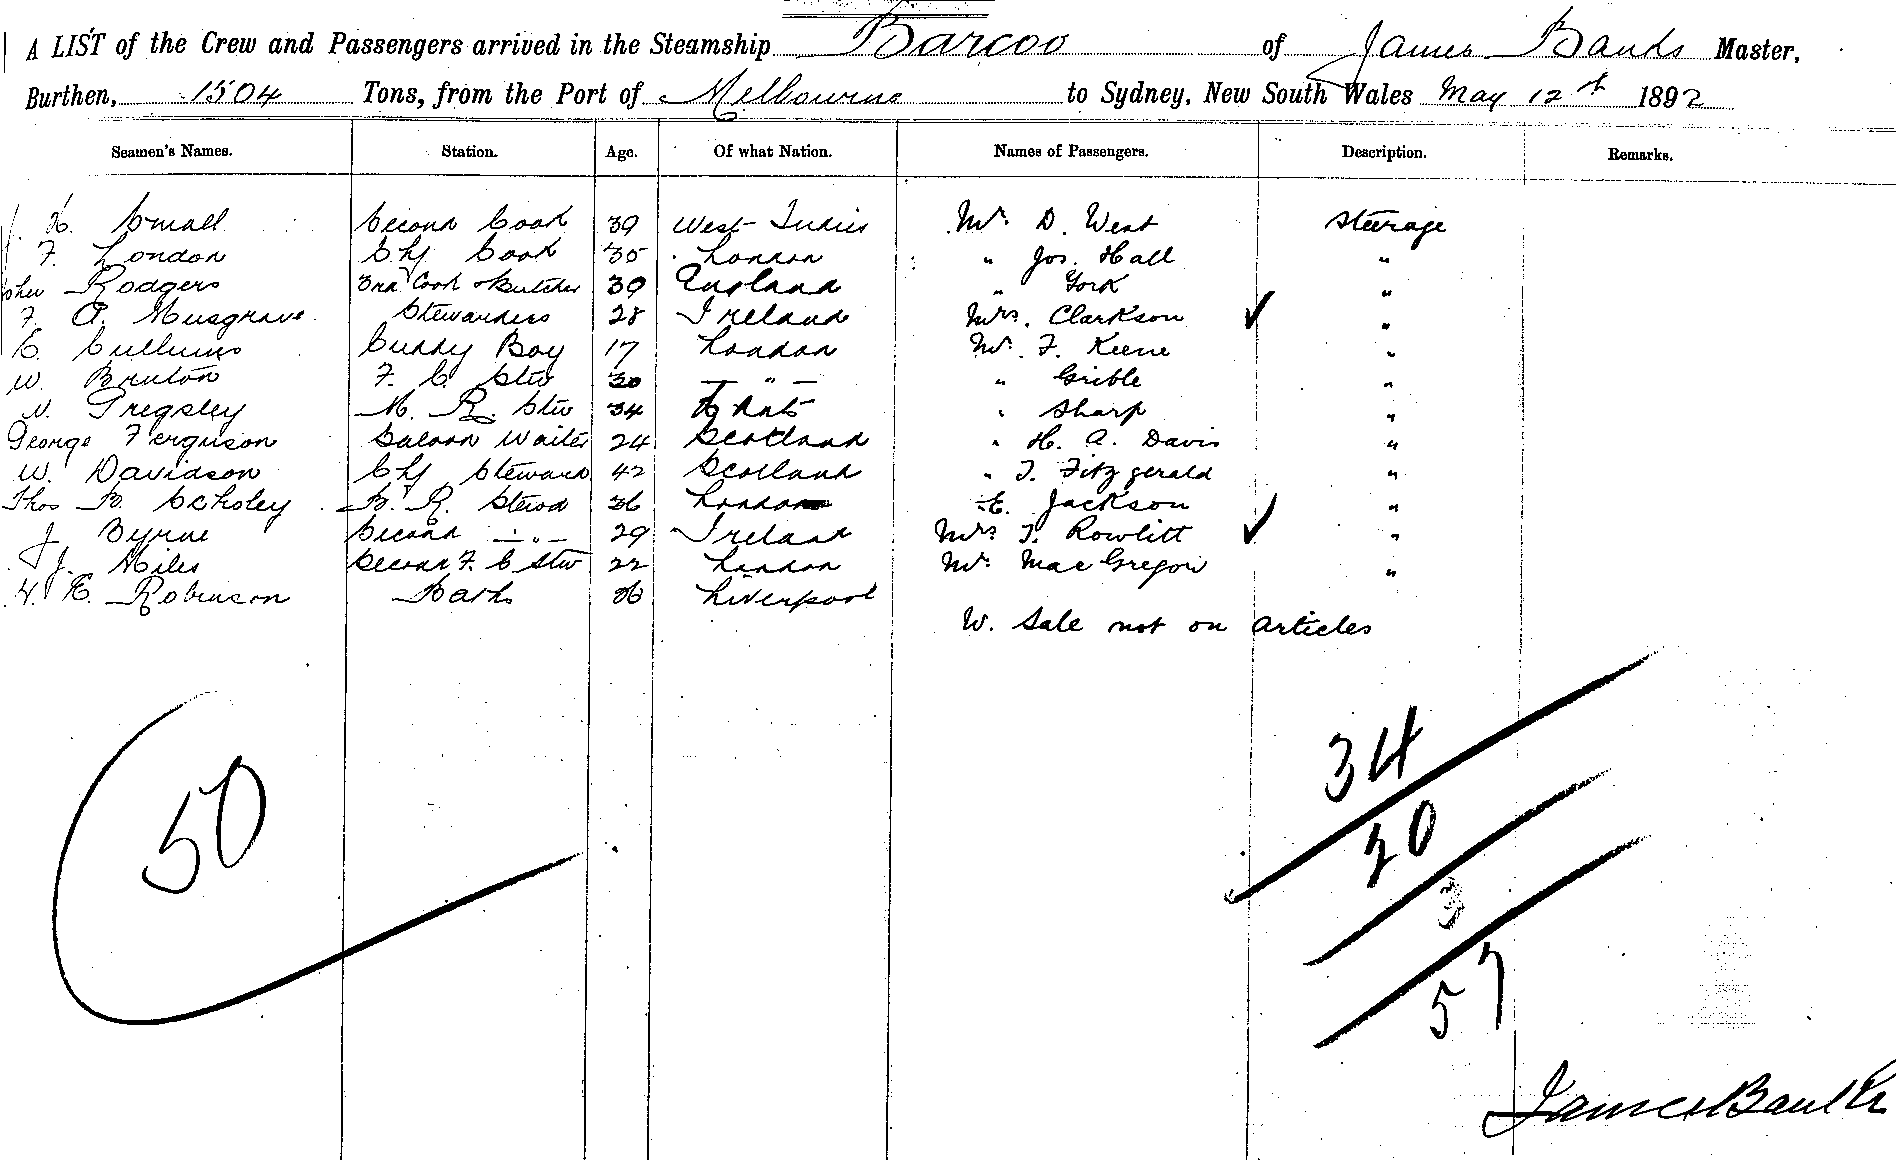 A LIST of the Crew and Passengers arrived in the Steamship Barcoo of James Banks Master,
Burthen, 1504 Tons, from the Port of Melbourne to Sydney, New South Wales May 12th 1892
Seamen's Names. Station. Age. Of what Nation. Names of Passengers. Description. Remarks.
H. Small Second Cook 39 West Indies Mr. D. West Steerage
F. London Chf Cook 35 London " Jos. Hall "
pher Rodgers 3rd Cook & Butcher 39 England " York "
F. A. Musgrave Stewardess 28 Ireland Mrs. Clarkson ✓ "
C. Cullums Cuddy Boy 17 London Mr. F. Keene "
W. Bruton F. C. Stw 30 — " — " Grible "
W. Pregsley M. R. Stw 34 " Sharp "
George Ferguson Saloon Waiter 24 Scotland " H. A. Davis "
W. Davidson Chf Steward 42 Scotland " T. Fitzgerald "
Thos B. Scholey B. R. Stewd 26 London E. Jackson "
J. Byrne Second — " — 29 Ireland Mrs T. Rowlitt ✓ "
J. Hiles Second F. C Stw 22 London Mr. MacGregor "
H. E. Robinson Bath 26 Liverpool
W. Sale not on articles
34
50
20
3
57
James Banks